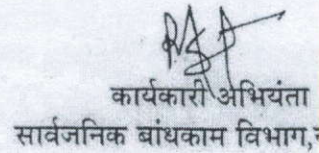 कार्यकारी अभियंता
सार्वजनिक बांधकाम विभाग,